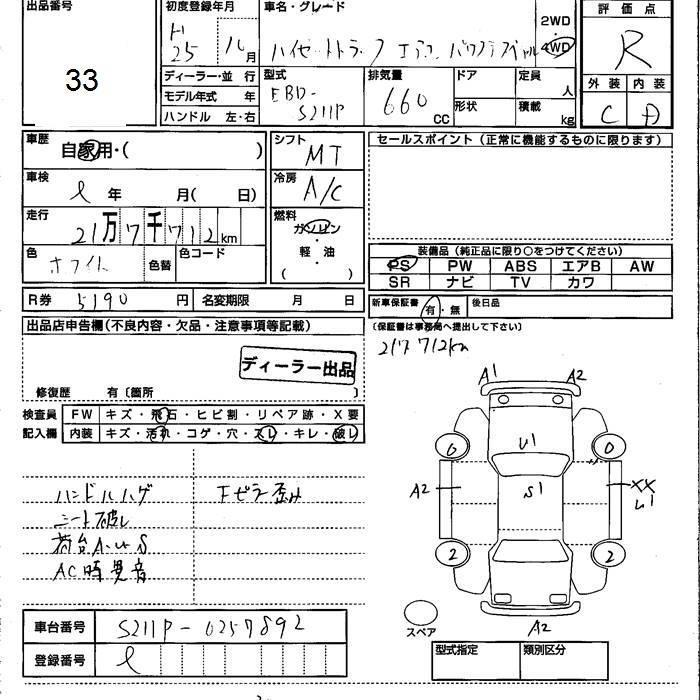 出品番号
33
初度登録年月
H
25 年 10 月
ディーラー・並 行
モデル年式 年
ハンドル 左・右
車名・グレード
ハイゼットトラック エアコン パワステスペシャル
2WD
・
4WD
型式
EBD-
S211P
排気量
660
CC
ドア
形状
定員
人
積載
kg
評価点
R
外装 内装
C D
車歴
自家用・( )
車検
年 月( 日)
走行
21万7千712km
色
ホワイト
色替
色コード
シフト
MT
冷房
A/C
燃料
ガソリン
・
軽・油
( )
R券 5190 円 名変期限 月 日
セールスポイント(正常に機能するものに限ります)
装備品(純正品に限り○をつけてください)
PS PW ABS エアB AW
SR ナビ TV カワ
新車保証書 有・無 後日品
(保証書は事務局へ提出して下さい)
217712km
出品店申告欄(不良内容・欠品・注意事項等記載)
ディーラー出品
修復歴 有〔箇所 〕
検査員 FW キズ・飛石・ヒビ割・リペア跡・X要
記入欄 内装 キズ・汚れ・コゲ・穴・スレ・キレ・破レ
ハンドルハゲ
シート破レ
荷台A・U・S
AC時異音
Fピラー歪み
A1 A2
U1
0 0
A2 S1 XX
U1
2 2
スペア
A2
車台番号 S211P-0257892
登録番号
型式指定 類別区分